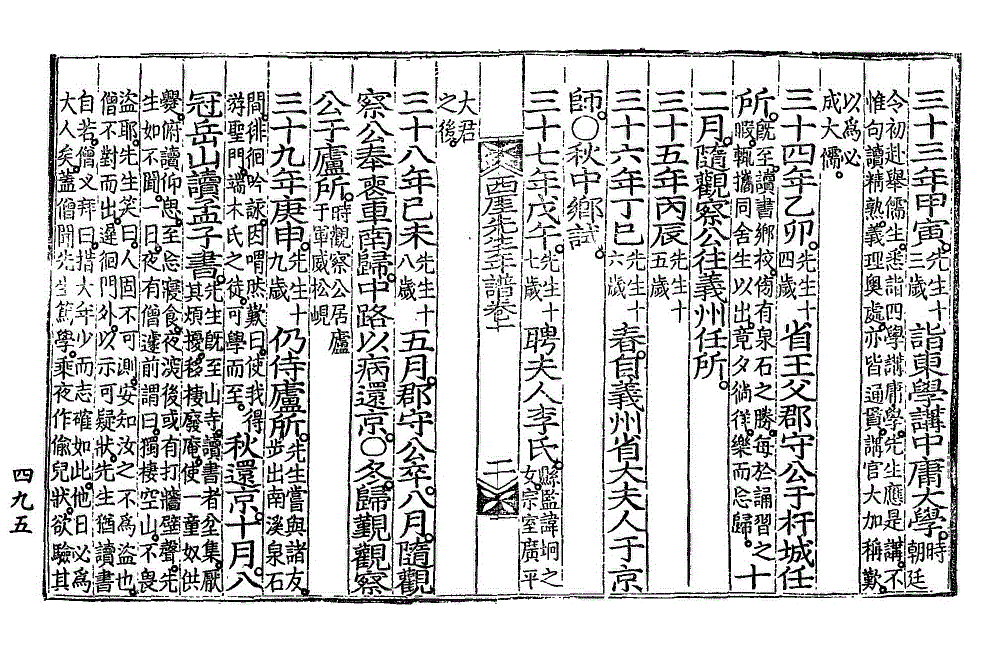 三十三年甲寅。先生十三歲 詣東學講中庸大學。時朝廷
令初赴舉儒生。悉詣四學講庸學。先生應是講。不
惟句讀精熟。義理奧處。亦皆通貫。講官大加稱歎。
以爲必
成大儒。
三十四年乙卯。先生十四歲 省王父郡守公于杆城任
所。旣至讀書鄉校。傍有泉石之勝。每於誦習之暇。輒攜同舍生以出。竟夕徜徉。樂而忘歸。十
二月。隨觀察公往義州任所。
三十五年丙辰 先生十五歲
三十六年丁巳 先生十六歲 春。自義州省大夫人于京
師。○秋中鄉試。
三十七年戊午。先生十七歲 聘夫人李氏。縣監諱坰之女。宗室廣平
西厓先生年譜卷一 二
大君
之後。
三十八年己未 先生十八歲 五月。郡守公卒。八月。隨觀
察公奉喪車南歸。中路以病還京。○冬。歸覲觀察
公于廬所。時觀察公居廬于軍威松峴
三十九年庚申。先生十九歲 仍侍廬所。先生嘗與諸友。步出南溪泉石
間。徘徊吟詠。因喟然歎曰。使我得游聖門。端木氏之徒。可學而至。秋還京。十月。入
冠岳山讀孟子書。先生旣至山寺。讀書者坌集。厭其煩擾。移棲廢庵。使一童奴供
爨。俯讀仰思。至忘寢食。夜深後或有打牆壁聲。先
生如不聞。一日。夜有僧遽前謂曰。獨棲空山。不畏
盜耶。先生笑曰。人固不可測。安知汝之不爲盜也。
僧不對而出。遲徊門外。以示可疑狀。先生猶讀書
自若。僧又拜曰。措大年少而志確如此。他日必爲
大人矣。蓋僧聞先生篤學。乘夜作偸兒狀。欲驗其
四九五